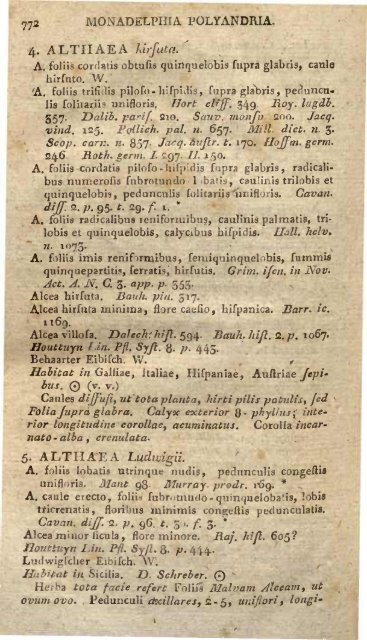 772 MONADELPHIA POLYANDRIA.
4. ALTHAEA hirſuta.
A. foliis cordatis obtuſis quinquelobis ſupra glabris, caule
hirſuto. W.
A. foliis trifidis piloſo-hiſpidis, ſupra glabris, peduncu-
lis ſolitariis unifloris. Hort cliff. 349. Roy. lugdb.
357. Dalib. pariſ. 210. Sauv. monſp. 200. Jacq.
vind. 125. Pollich. pal. n. 657. Mill. dict. n. 3.
Scop. carn. n. 857. Jacq. auſtr. t. 170. Hoffm. germ.
246. Roth. germ. I. 297. II. 150.
A. foliis cordatis piloſo-hiſpidis ſupra glabris, radicali-
bus numeroſis ſubrotundo lobatis, caulinis trilobis et
quinquelobis, pedunculis ſolitariis unifloris. Cavan.
diſſ. 2. p. 95. t. 29. f. 1. *
A. foliis radicalibus reniformibus, caulinis palmatis, tri-
lobis et quinquelobis, calycibus hiſpidis. Hall. helv.
n. 1073.
A. foliis imis reniformibus, ſemiquinquelobis, ſummis
quinquepartitis, ſerratis, hirſutis. Grim. iſen. in Nov.
Act. A. N. C. 3. app. p. 353.
Alcea hirſuta. Bauh. pin. 317.
Alcea hirſuta minima, flore caeſio, hiſpanica. Barr. ic.
1169.
Alcea villoſa. Dalech. hiſt. 594. Bauh. hiſt. 2. p. 1067.
Houttuyn Lin. Pfl. Syſt. 8. p. 443.
Behaarter Eibiſch. W.
Habitat in Galliae, Italiae, Hiſpaniae, Auſtriae ſepi-
bus. ☉ (v. v.)
Caules diffuſi, ut tota planta, hirti pilis patulis, ſed
Folia ſupra glabra. Calyx exterior 8-phyllus; inte-
rior longitudine corollae, acuminatus. Corolla incar-
nato-alba, crenulata.
5. ALTHAEA Ludwigii.
A. foliis lobatis utrinque nudis, pedunculis congeſtis
unifloris. Mant 98. Murray. prodr. 169. *
A. caule erecto, foliis ſubrotundo-quinquelobatis, lobis
tricrenatis, floribus minimis congeſtis pedunculatis.
Cavan. diſſ. 2. p. 96. t. 30. f. 3. *
Alcea minor ſicula, flore minore. Raj. hiſt. 605?
Houttuyn Lin. Pfl. Syſt. 8. p. 444.
Ludwigſcher Eibiſch. W.
Habitat in Sicilia. D. Schreber. ☉
Herba tota facie refert Foliis Malvam Alceam, ut
ovum ovo. Pedunculi axillares, 2-5, uniflori, longi-